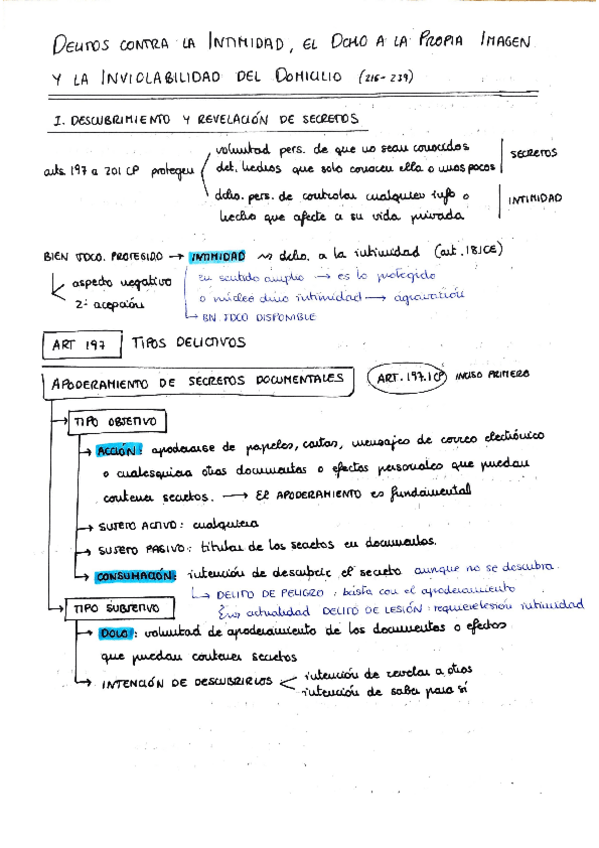 DELITOS CONTRA LA INTIMIDAD, EL DCHO A LA PROPIA IMAGEN
Y LA INVIOLABILIDAD DEL DOMICILIO (216-239)
I. DESCUBRIMIENTO Y REVELACIÓN DE SECRETOS
arts. 197 a 201 CP protegen
voluntad pers. de que no sean conocidos
det. hechos que solo conocen ella o unos pocos
SECRETOS
dcho. pers. de controlar cualquier info o
hecho que afecte a su vida privada
INTIMIDAD
BIEN JDCO. PROTEGIDO → INTIMIDAD dcho. a la intimidad (art. 18.1CE)
aspecto negativo
2ª acepción
En sentido amplio → es lo protegido
o núcleo duro intimidad → agravación
→ BN JDCO DISPONIBLE
ART 197 TIPOS DELICTIVOS
APODERAMIENTO DE SECRETOS DOCUMENTALES ART. 197.1 CP INCISO PRIMERO
→ TIPO OBJETIVO
→ ACCIÓN: apoderarse de papeles, cartas, mensajes de correo electrónico
o cualesquiera otros documentos o efectos personales que puedan
contener secretos. → El APODERAMIENTO es fundamental
→ SUJETO ACTIVO: cualquiera
→ SUJETO PASIVO: titular de los secretos en documentos.
→ CONSUMACIÓN: intención de descubrir el secreto aunque no se descubra.
→ DELITO DE PELIGRO: basta con el apoderamiento
actualidad DELITO DE LESIÓN: requiere lesión intimidad
→ TIPO SUBJETIVO
→ DOLO: voluntad de apoderamiento de los documentos o efectos
que puedan contener secretos
→ INTENCIÓN DE DESCUBRIRLOS
intención de revelar a otros
intención de saber para sí